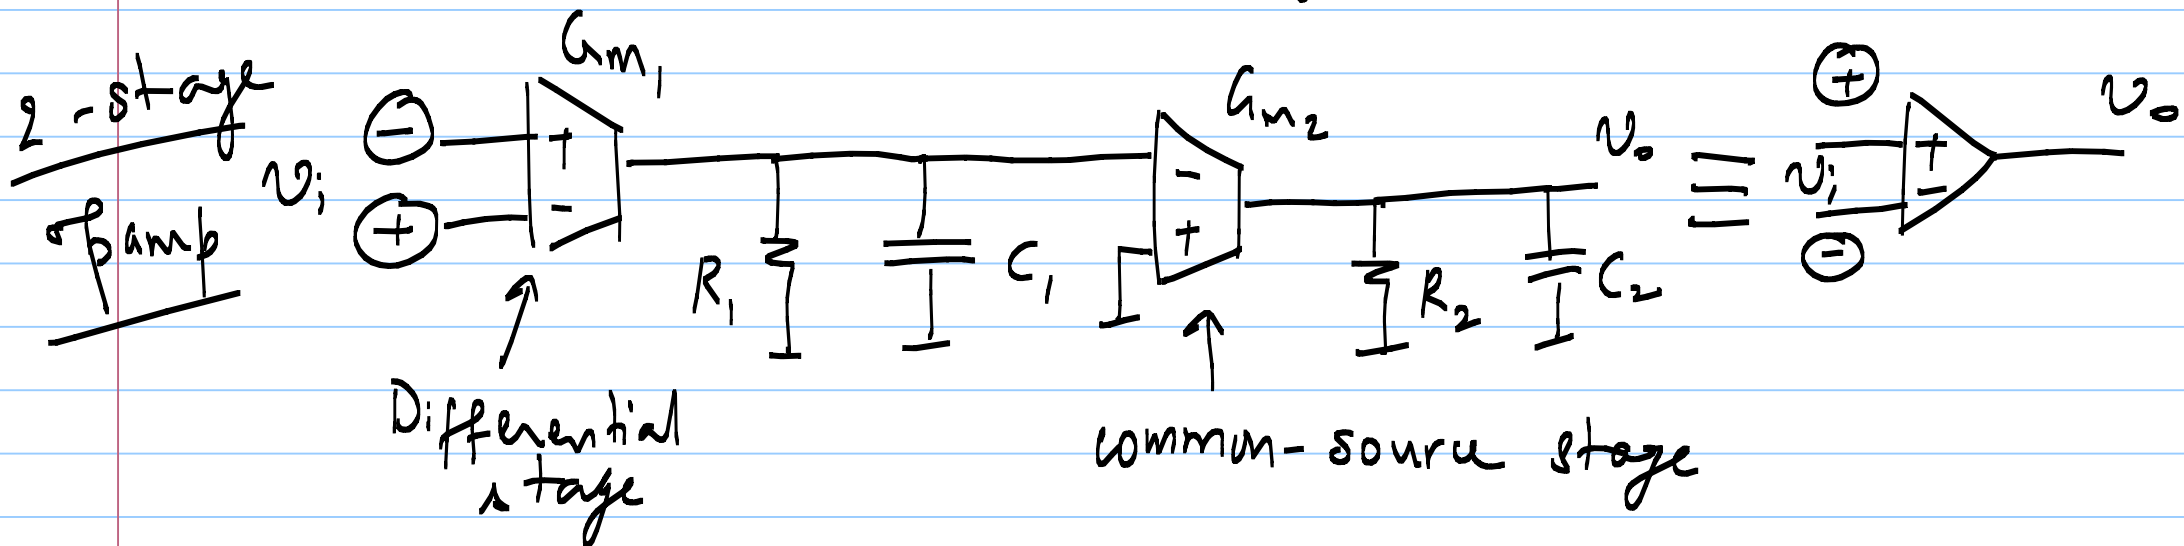 2-stage
opamp
Gm1
Gm2
vi
-
+
+
-
-
+
R1
C1
R2
C2
vo
≡
vi
+
-
+
-
vo
Differential
stage
common-source stage